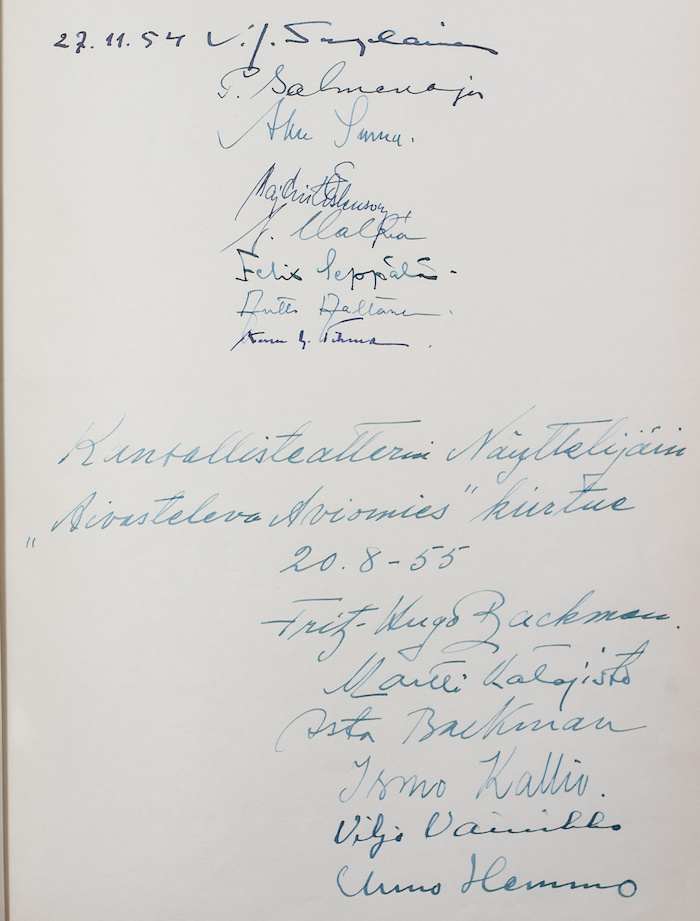 27.11.54 V. J. Sukselainen
P. Salmenoja
Aku Sumu.
J. Malkia
Felix Seppälä-
Antti Aaltonen.
Kansallisteatterin Näyttelijäin
„Aivasteleva Aviomies" kiertue
20.8-55
Frits-Hugo Backman.
Martti Katajisto
Asta Backman
Ismo Kallio.
Viljo Vainikko
Unno Hemmo